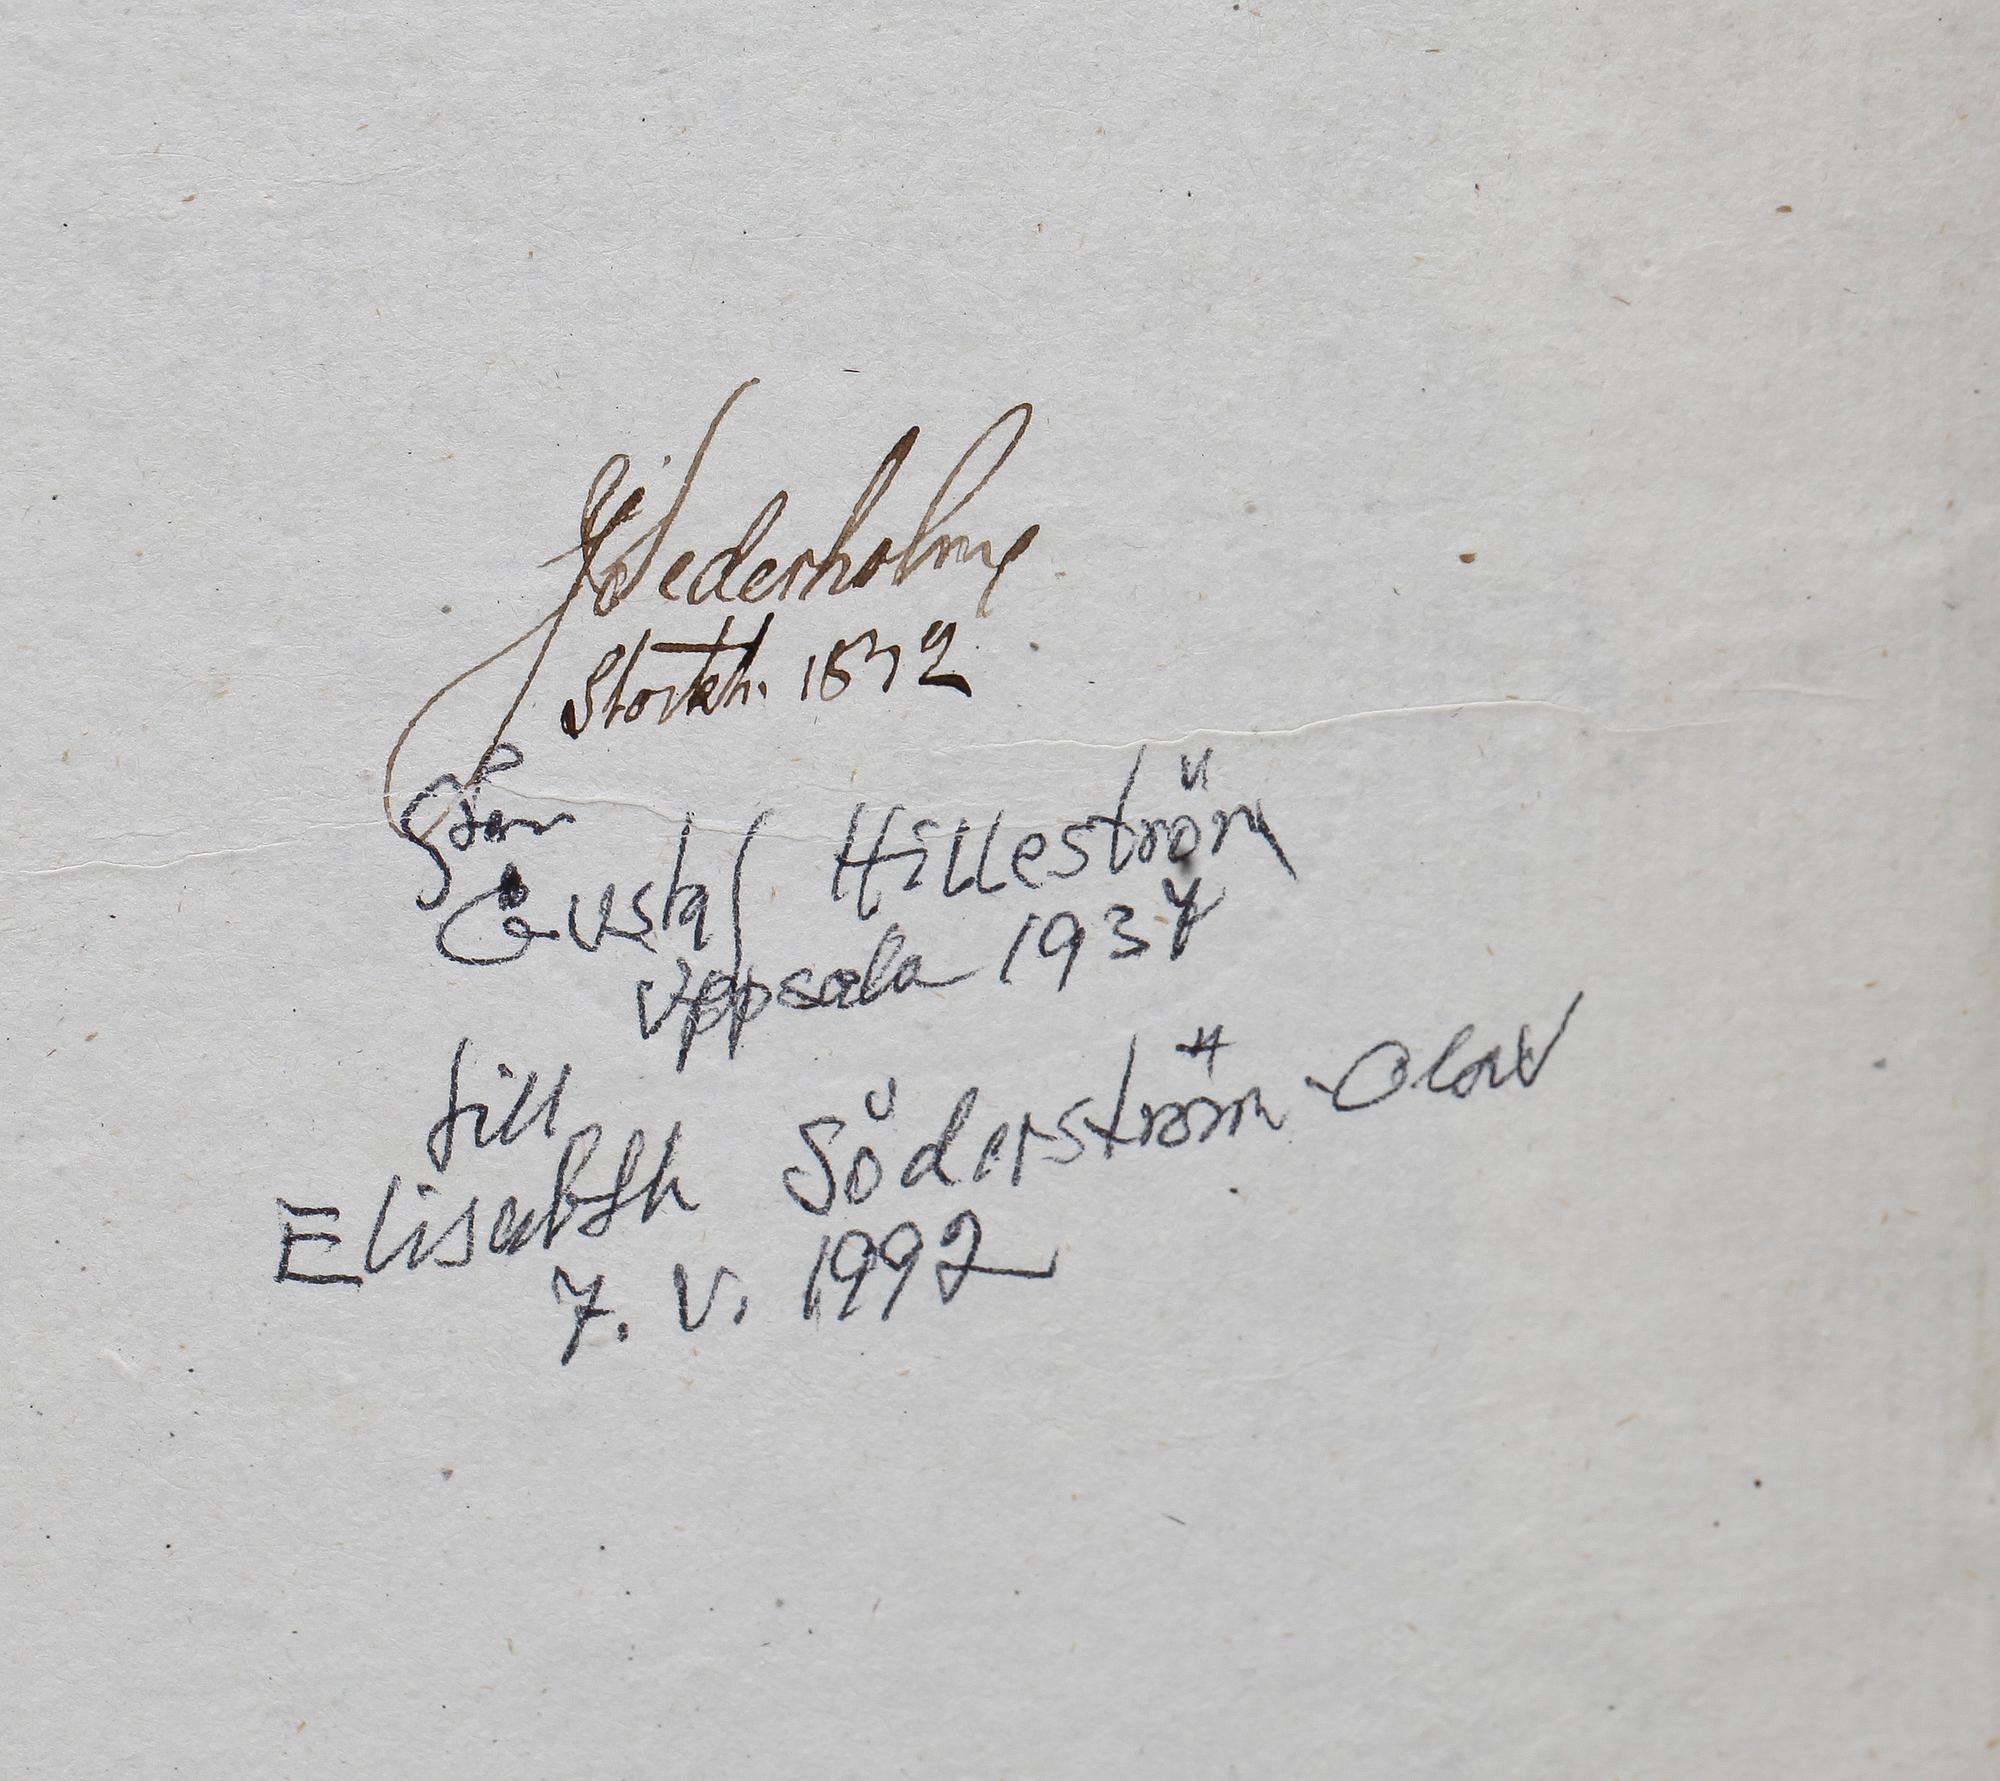 Cederholm
Stockh. 1872
från
Gustaf Hilleström
Uppsala 1937
till
Elisabeth Söderström-Olow
7. V. 1992